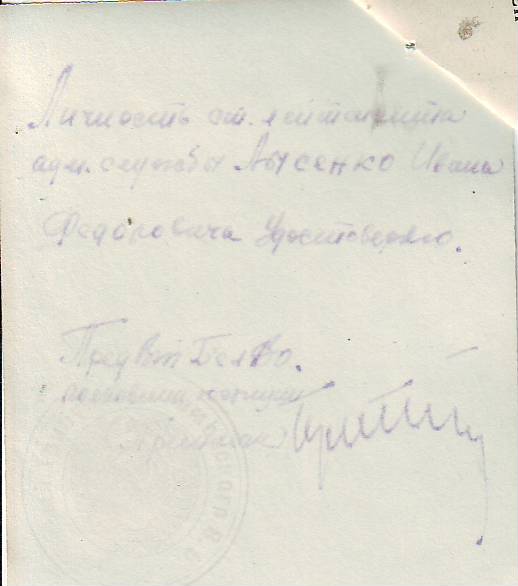 Личность ст. лейтенанта
адм. службы Лысенко Ивана
Федоровича Удостоверяю.
Пред ВТ БелВО.
полковник юстиции